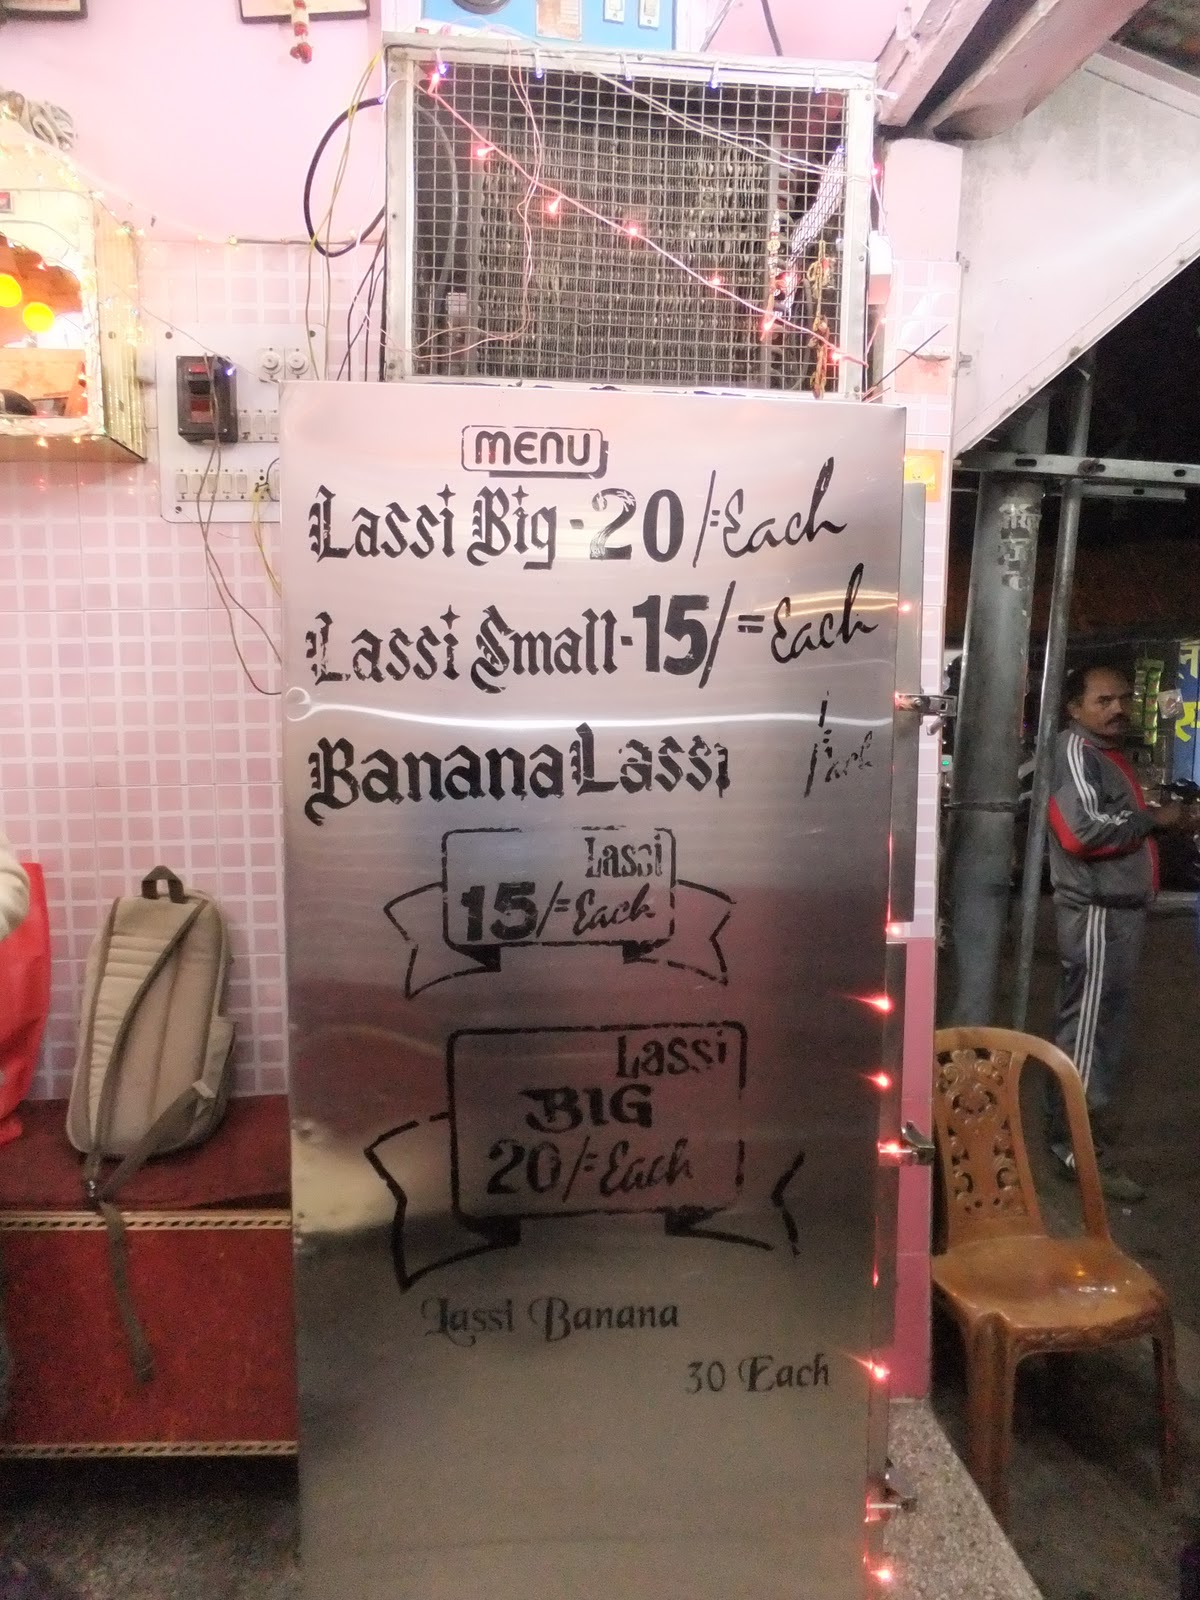 MENU
Lassi Big - 20/= Each
Lassi Small - 15/= Each
Banana Lassi /= Each
Lassi
15/= Each
Lassi
BIG
20/= Each
Lassi Banana
30 Each